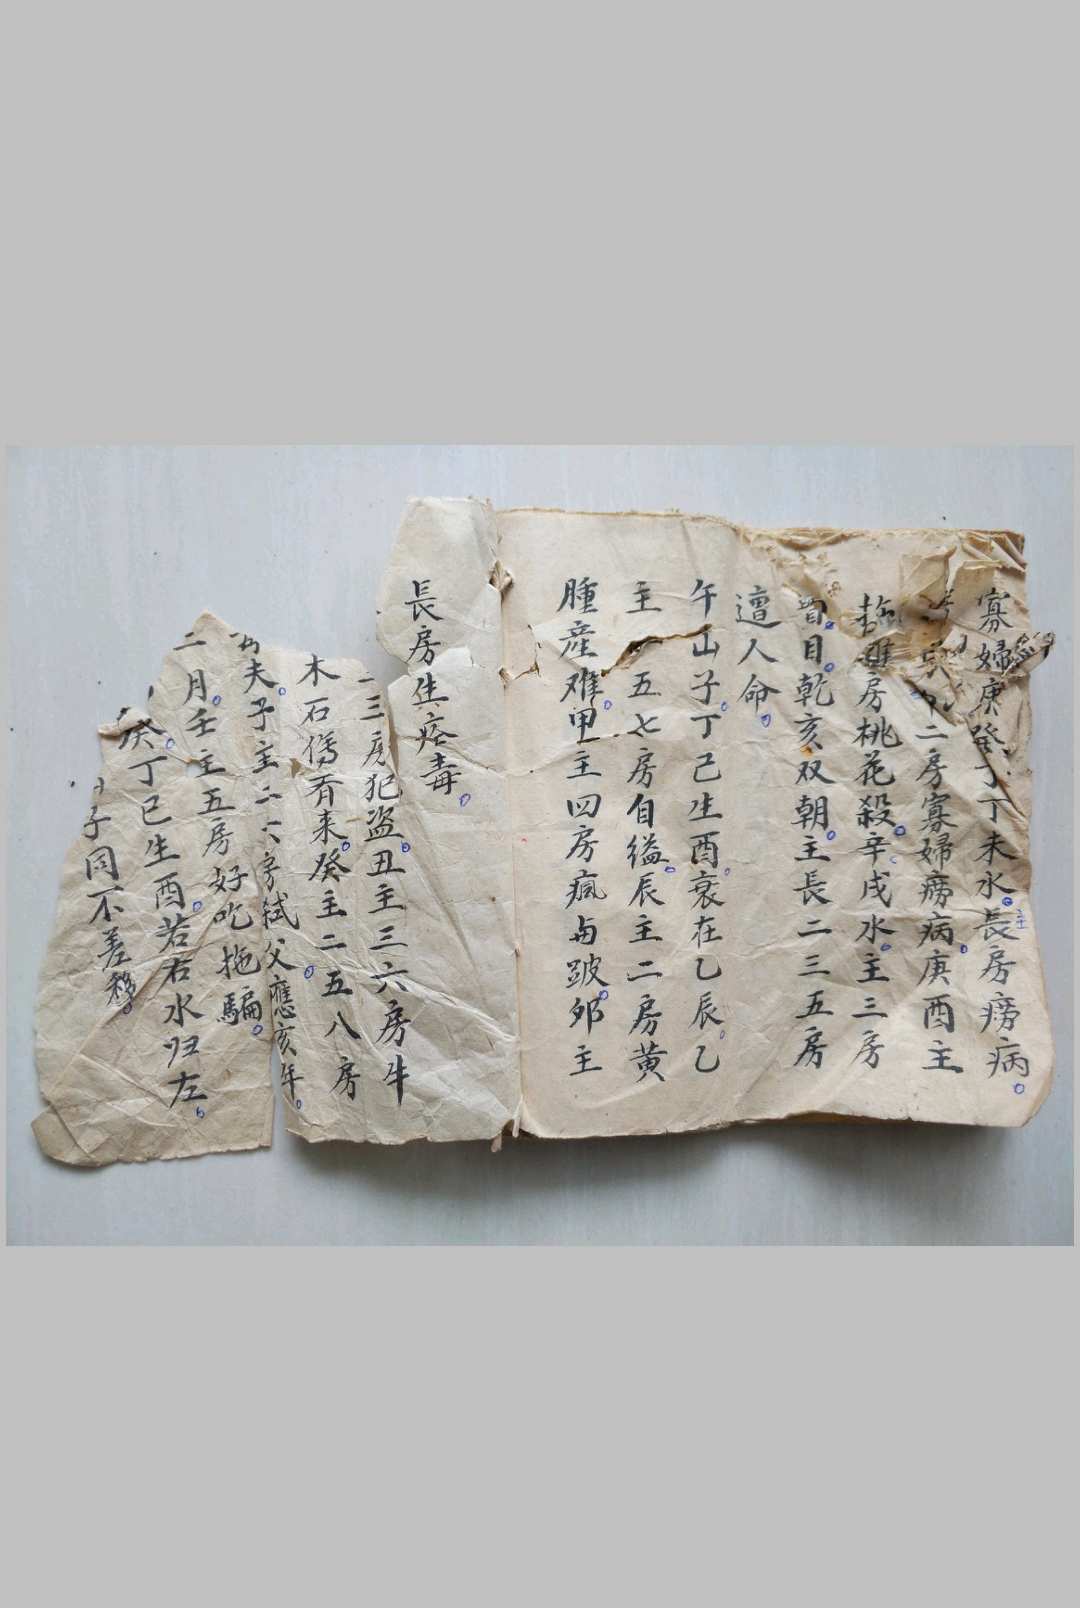 寡婦庚癸丁丁未水長房癆病
主
二房寡婦癆病庚酉主
房桃花殺辛戌水主三房
目乾亥双朝主長二三五房
遭人命
午山子丁己生酉衰在乙辰乙
主一五七房自缢辰主二房黄
腫産难甲主四房瘋与跛夘主
長房生疮毒
三房犯盗丑主三六房牛
木石傷有来癸主二五八房
夫子主二六房弑父應亥年
二月壬主五房好吃拖騙
癸丁已生酉若右水归左
子同不差移